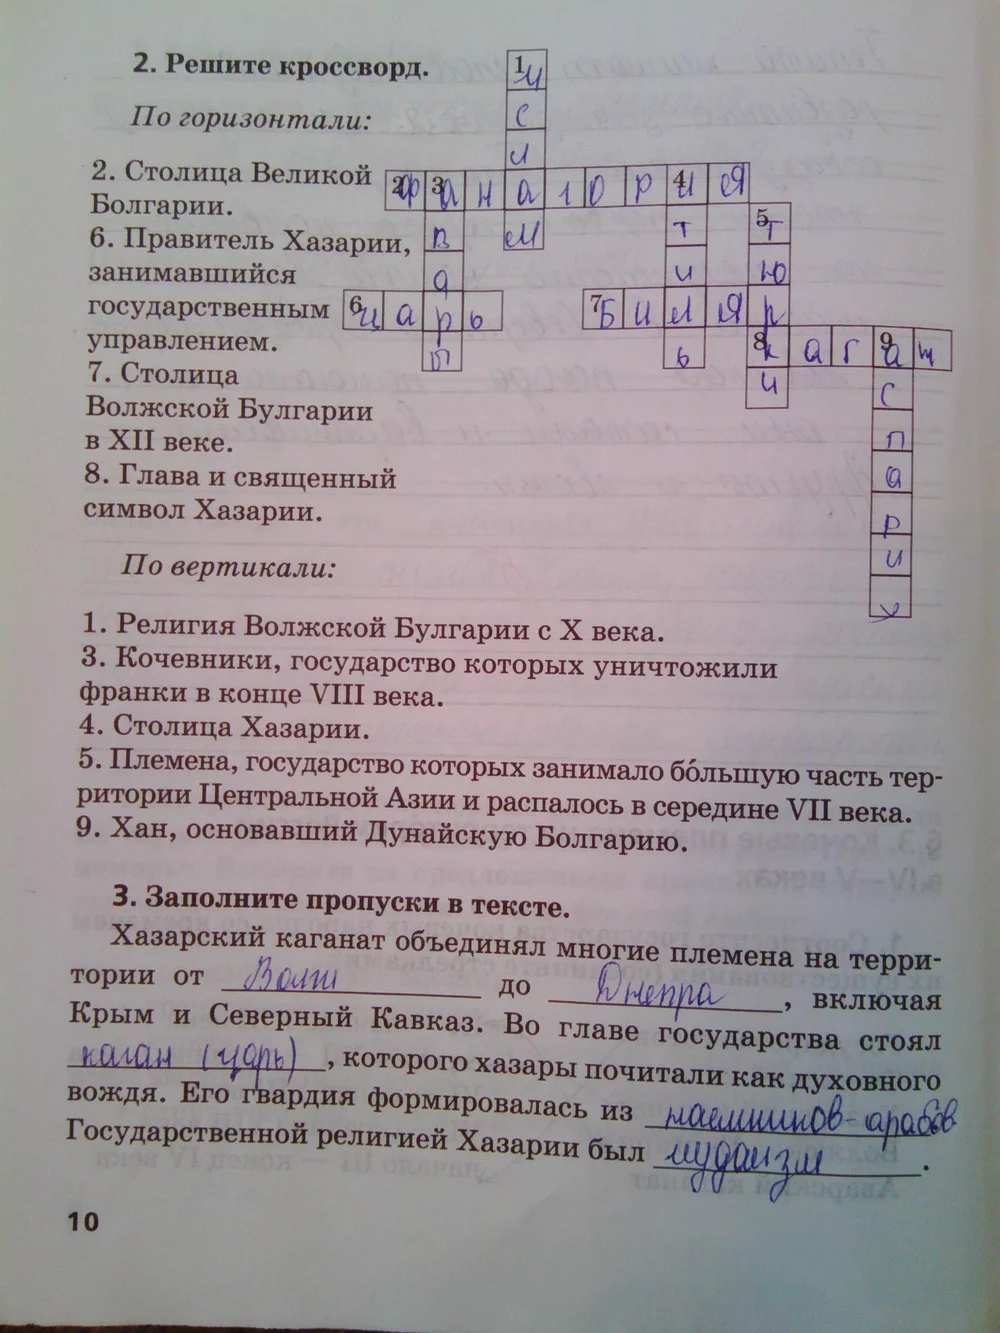 2. Решите кроссворд.
По горизонтали:
2. Столица Великой
Болгарии.
6. Правитель Хазарии,
занимавшийся
государственным
управлением.
7. Столица
Волжской Булгарии
в XII веке.
8. Глава и священный
символ Хазарии.
1 и с л а м
2 Ф 3 а н а г о р 4 и я
в а р ы
т и л ь
5 т ю р к и
6 ц а р ь
7 Б и л я р
8 к а г 9 а н
с п а р у х
По вертикали:
1. Религия Волжской Булгарии с X века.
3. Кочевники, государство которых уничтожили
франки в конце VIII века.
4. Столица Хазарии.
5. Племена, государство которых занимало бóльшую часть тер-
ритории Центральной Азии и распалось в середине VII века.
9. Хан, основавший Дунайскую Болгарию.
3. Заполните пропуски в тексте.
Хазарский каганат объединял многие племена на терри-
тории от Волги до Днепра, включая
Крым и Северный Кавказ. Во главе государства стоял
каган (царь), которого хазары почитали как духовного
вождя. Его гвардия формировалась из наемников-арабов
Государственной религией Хазарии был иудаизм.
10